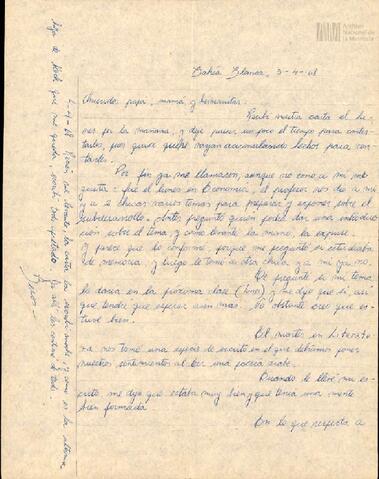 Archivo
Nacional de
la Memoria
Bahía Blanca, 3-4-68
Querido papá, mamá y hermanitas:
Recibí vuestra carta el lu-
nes por la mañana, y dejé pasar un poco el tiempo para contes-
tarles, pues quise que se vayan acumulando hechos para con-
tarles.
Por fin ya me llamaron, aunque no como a mí me
gusta: fue el lunes en Economía, el profesor nos dio a mí
y a 2 chicas varios temas para preparar y exponer sobre el
Subdesarrollo. Antes preguntó quién podía dar una introduc-
ción sobre el tema, y como levanté la mano, la expuse,
y parece que lo conformé, porque me preguntó si estudiaba
de memoria, y luego le tomó a otra chica, y a mí ya no.
Le pregunté si mi tema
lo daría en la próxima clase (lunes) y me dijo que sí, así
que tendré que esperar aún más. No obstante creo que es-
tuve bien.
El martes en Literatu-
ra nos tomó una especie de escrito en el que debíamos poner
nuestros sentimientos al leer una poesía árabe.
Cuando le llevé mi es-
crito me dijo que estaba muy bien y que tenía una mente
bien formada.
Con lo que respecta a
4-4-68 Recién me levanto, la carta la escribí anoche, y como es la última
hoja de block que me queda, escribí todo apilado. De así les